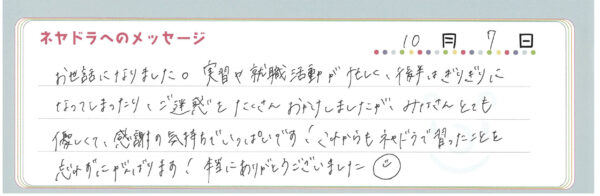 ネヤドラへのメッセージ
10月7日
お世話になりました。実習や就職活動が忙しく、後半はぎりぎりに
なってしまったり、ご迷惑をたくさんおかけしましたが、みなさんとても
優しくて、感謝の気持ちでいっぱいです！これからもネヤドラで習ったことを
忘れずにがんばります！本当にありがとうございました